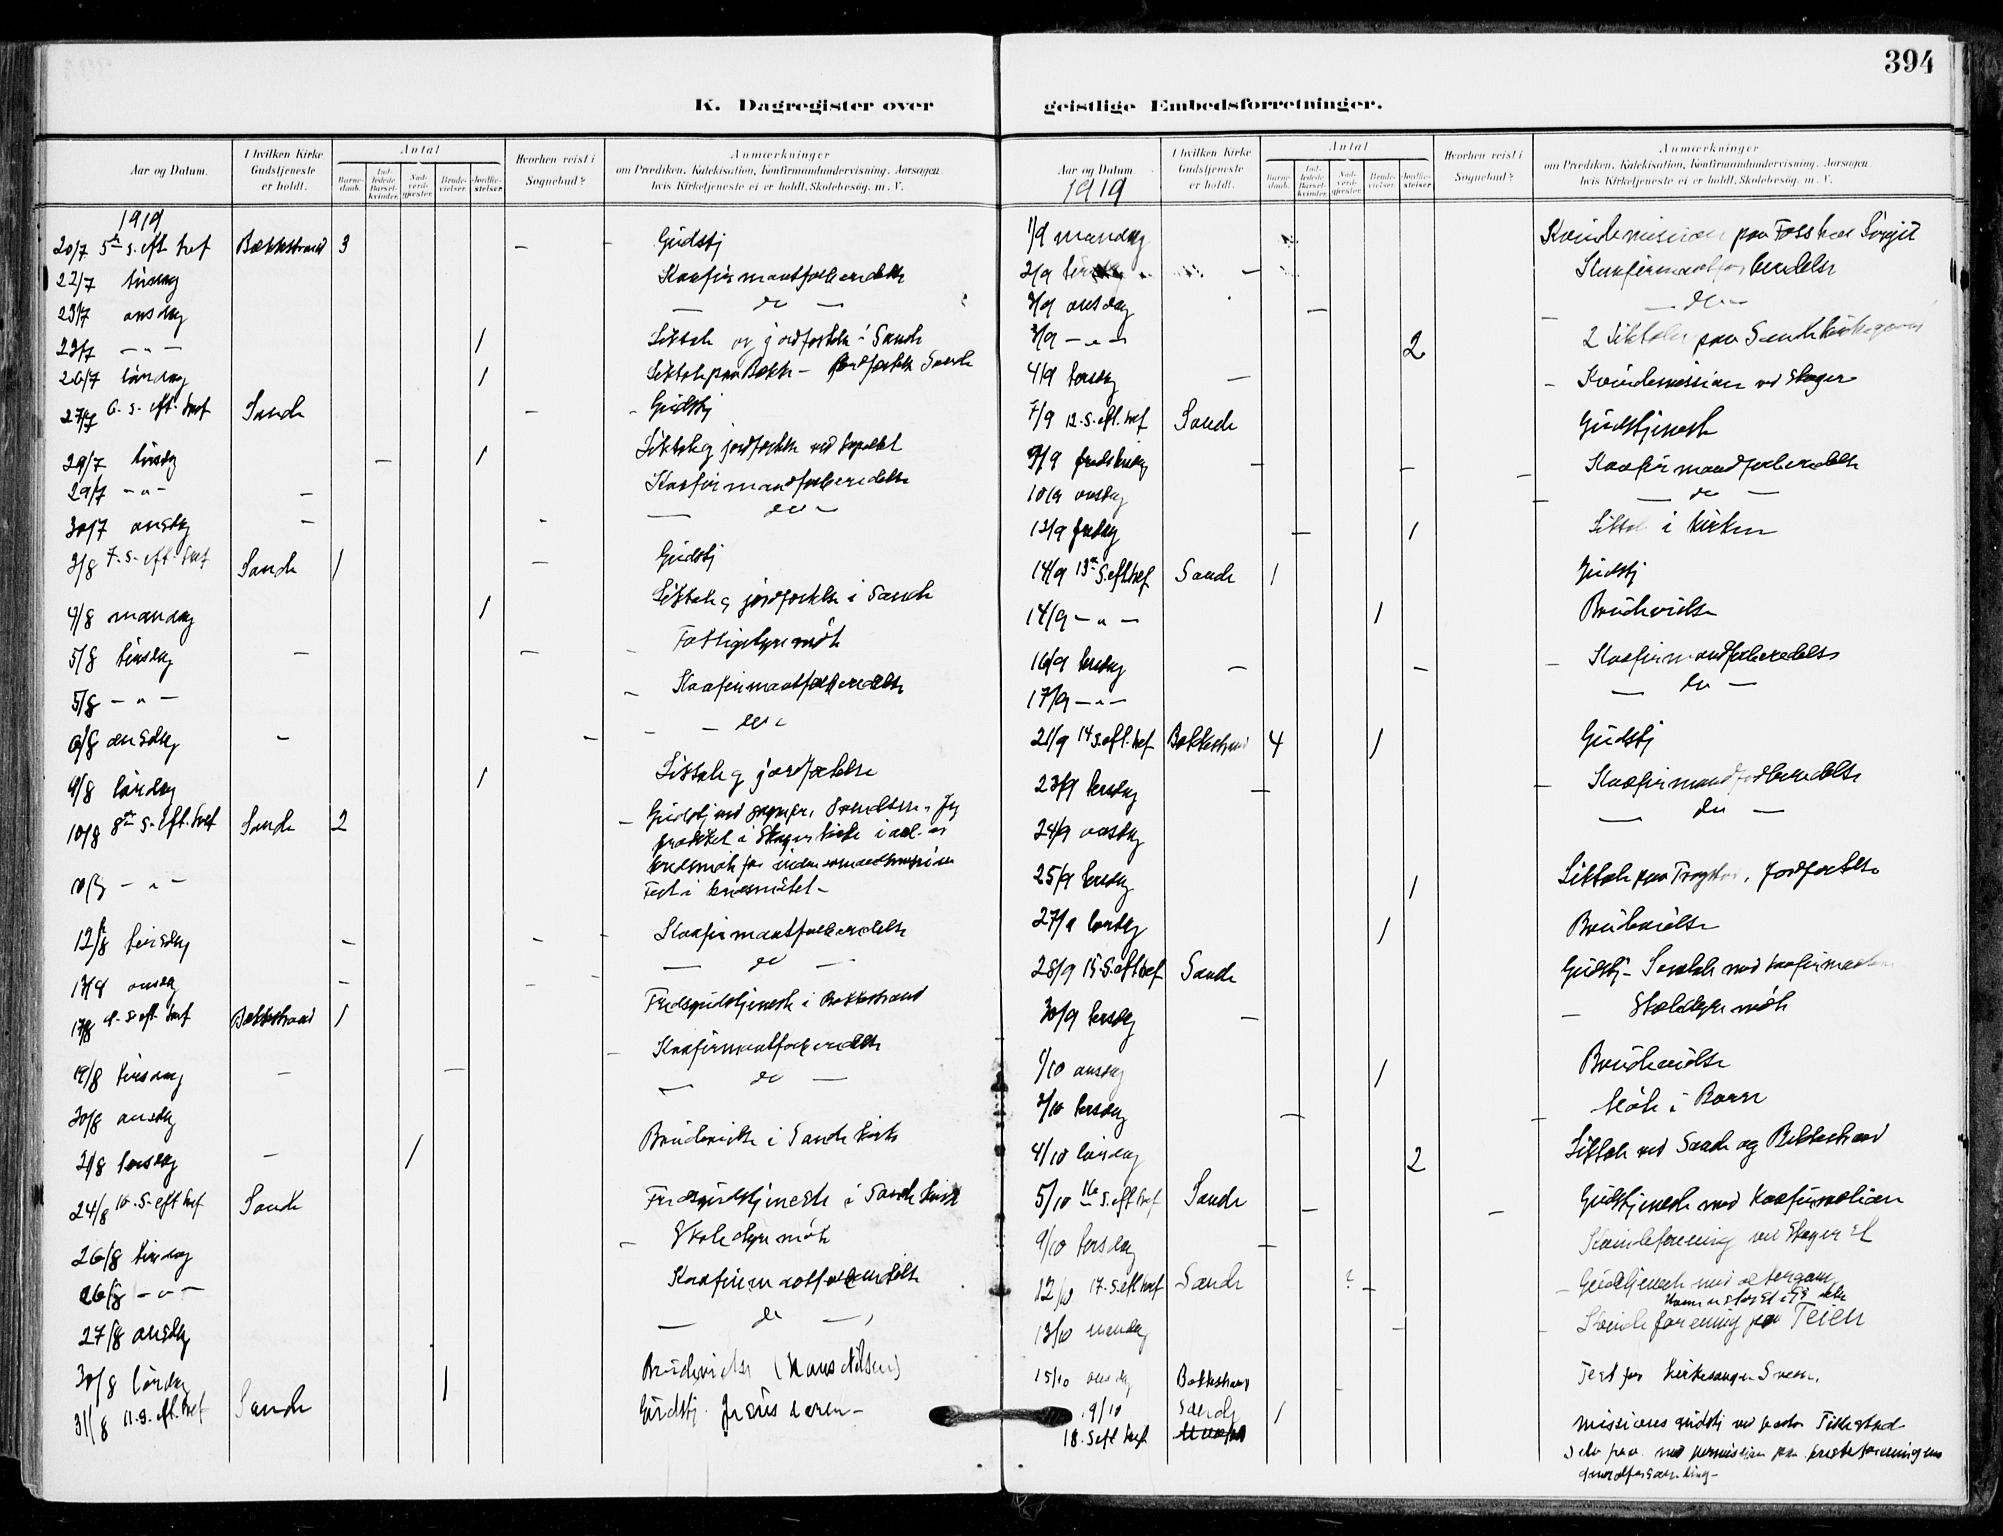 394
K. Dagregister over
geistlige Embedsforretninger.
Aar og Datum.
I hvilken Kirke Gudstjeneste er holdt.
Antal
Barne-daab.
Ind-ledede Barsel-kvinder.
Nad-verd-gjester.
Brude-vielser.
Jordfæ-stelser.
Hvorhen reist i Sognebud?
Anmærkninger
om Prædiken, Katekisation, Konfirmandundervisning, Aarsagen,
hvis Kirketjeneste ei er holdt, Skolebesøg, m. V.
1919
20/7 5te s. eft. tref Bækkestrand 3 Gudstj
22/7 tirsdag Konfirmantforberedelse
23/7 onsdag — do —
23/7 — " — 1 Liktale og jordfæstelse i Sande
26/7 lørdag 1 Liktale paa Bække – jordfæstelse Sande
27/7 6. s. eft. tref Sande Gudstj
29/7 tirsdag 1 Liktale og jordfæstelse ved kapellet
29/7 — " — Konfirmandforberedelse
30/7 onsdag — do —
3/8 7. s. eft. tref Sande 1 Gudstj
4/8 mandag 1 Liktale og jordfæstelse i Sande
5/8 tirsdag Fattigstyremøte
5/8 — " — Konfirmantforberedelse
6/8 onsdag — do —
9/8 lørdag 1 Liktale og jordfæstelse
10/8 8de s. eft. tref Sande 2 Gudstj ved sognepr. Svendsen. Jeg
prækket i Skoger kirke i anl. av
kredsmøte for
10/8 — " — Fest i kredsmøtet –
12/8 tirsdag Konfirmantforberedelse
13/8 onsdag — do —
17/8 9. s. eft. tref Bækkestrand 1 Fredsgudstjeneste i Bækkestrand
19/8 tirsdag Konfirmantforberedelse
20/8 onsdag — do —
21/8 torsdag 1 Brudevielse i Sande kirke
24/8 10. s. eft tref Sande Fredsgudstjeneste i Sande kirke
26/8 tirsdag Skolestyremøte
26/8 — " — Konfirmantforberedelse
27/8 onsdag — do —
30/8 lørdag 1 Brudevielse (Hans Nilsen)
31/8 11. s. eft. tref Sande Gudstj.
Aar og Datum
I hvilken Kirke Gudstjeneste er holdt.
Antal
Barne-daab.
Ind-ledede Barsel-kvinder.
Nad-verd-gjester.
Brude-vielser.
Jordfæ-stelser.
Hvorhen reist i Sognebud?
Anmærkninger
om Prædiken, Katekisation, Konfirmandundervisning, Aarsagen,
hvis Kirketjeneste ei er holdt, Skolebesøg, m. V.
1919
1/9 mandag Kvindemission paa
2/9 Konfirmantforberedelse
3/9 onsdag — do —
3/9 — " — 2 2 liktaler paa Sande kirkegaard
4/9 torsdag Kvindemission ved Skoger
7/9 12. s. eft. tref Sande Gudstjeneste
9/9 Konfirmandforberedelse
10/9 onsdag — do —
12/9 fredag 1 Liktale i kirken
14/9 13de s. eft. tref Sande 1 Gudstj
14/9 — " — 1 Brudevielse
16/9 Konfirmandforberedelse
17/9 — " — — do —
21/9 14 s. eft. tref Bækkestrand 4 1 Gudstj
23/9 Konfirmandforberedelse
24/9 onsdag — do —
25/9 torsdag 1 Liktale paa Jordfæstelse
27/9 lørdag 1 Brudevielse
28/9 15 s. eft tref Sande Gudstj – med konfirmanterne
30/9 Skolestyremøte
1/10 onsdag 1 Brudevielse
2/10 torsdag Møte i
4/10 lørdag 2 Liktale ved Sande og Bækkestrand
5/10 16de s. eft tref Sande Gudstjeneste med konfirmation
9/10 torsdag Kvindeforening ved Skoger
12/10 17. s. eft tref Sande Gudstjeneste med altergang
13/10 mandag Kvindeforening paa Teien
15/10 onsdag Bækkestrand Fest for kirkesanger
19/10 Sande 1 Missionsgudstj ved pastor
18. s eft tref
Selv fra. med permission paa presteforeningens
generalforsamling –